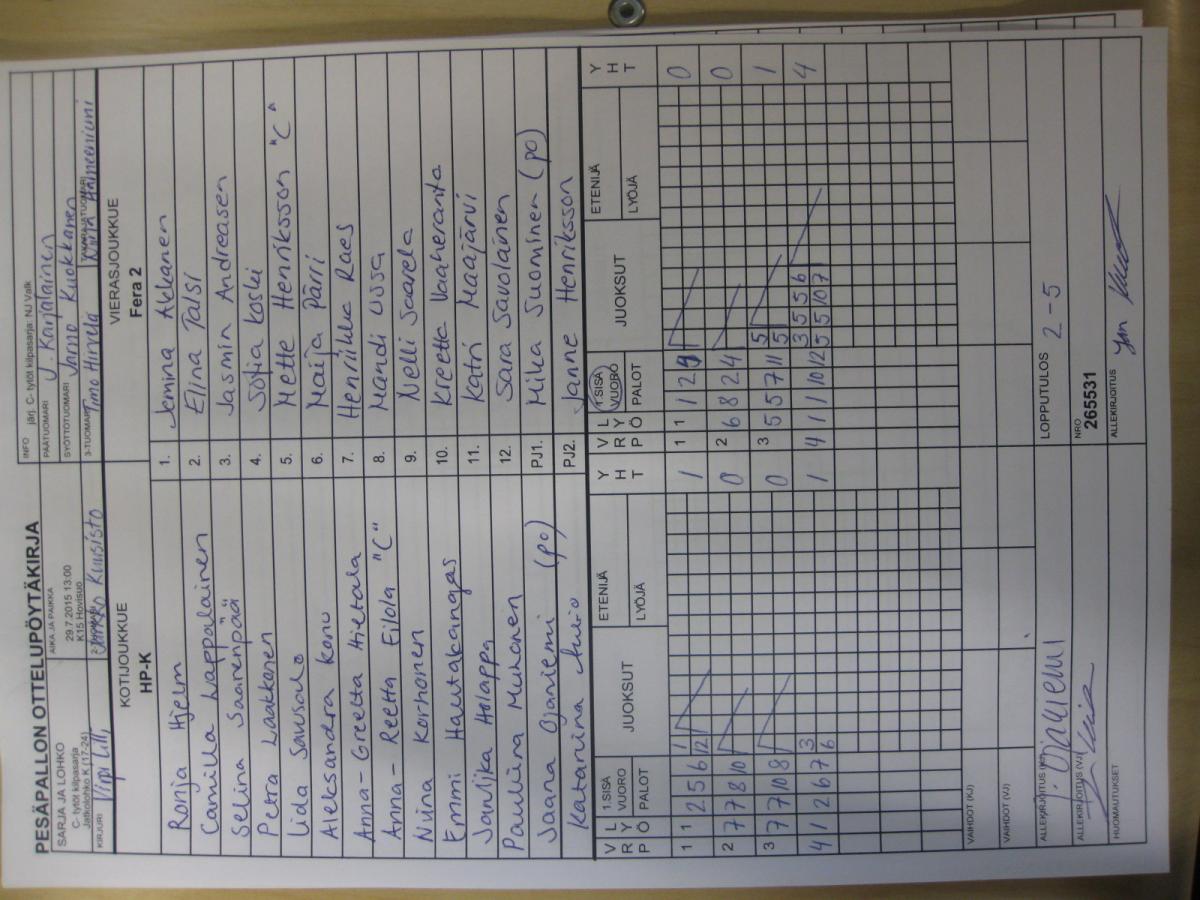 PESÄPALLON OTTELUPÖYTÄKIRJA
SARJA JA LOHKO
C- tytöt kilpasarja
Jatkolohko K (17-24)
AIKA JA PAIKKA
29.7.2015 13:00
K15 Hovisuo
INFO järj. C- tytöt kilpasarja: NJ Valk
PÄÄTUOMARI J. Karjalainen
SYÖTTÖTUOMARI Jarno Kuokkanen
KIRJURI Virpi
Jarkko Kuusisto
3-TUOMARI Timo Hirvelä
TAKARAJATUOMARI
KOTIJOUKKUE
HP-K
VIERASJOUKKUE
Fera 2
Ronja Hjelm 1. Jemina Akkanen
Camilla Lappalainen 2. Elina Palsi
Selina Saarenpää 3. Jasmin Andreasen
Petra Laakkonen 4. Sofia Koski
Iida Savusalo 5. Mette Henriksson "C"
Aleksandra Kono 6. Maija Pärri
Anna-Greetta Hietala 7. Henriikka Raes
Anna-Reetta Eilola "C" 8. Mandi Ussa
Nina Korhonen 9. Nelli Saarela
Emmi Hautakangas 10. Kreetta Vaaheranta
Jonjika Holappa 11. Katri Maajärvi
Pauliina Muhonen 12. Sara Savolainen
Jaana Ojaniemi (po) PJ1. Mika Suominen (po)
Katariina PJ2. Janne Henriksson
V R L Y Ö 1.SISÄ VUORO PALOT JUOKSUT ETENIJÄ LYÖJÄ Y H T V R L Y Ö 1.SISÄ VUORO PALOT JUOKSUT ETENIJÄ LYÖJÄ Y H T
1 1 2 5 6 1 12 1 1 1 1 2 9 0
2 7 7 8 10 0 2 6 8 2 4 0
3 7 7 10 8 0 3 5 5 7 11 5 5 1
4 1 2 6 7 3 6 1 4 1 1 10 12 3 5 5 6 5 5 10 7 4
VAIHDOT (KJ)
VAIHDOT (VJ)
ALLEKIRJOITUS (KJ) J. Ojaniemi
LOPPUTULOS 2-5
ALLEKIRJOITUS (VJ)
NRO
265531
HUOMAUTUKSET
ALLEKIRJOITUS